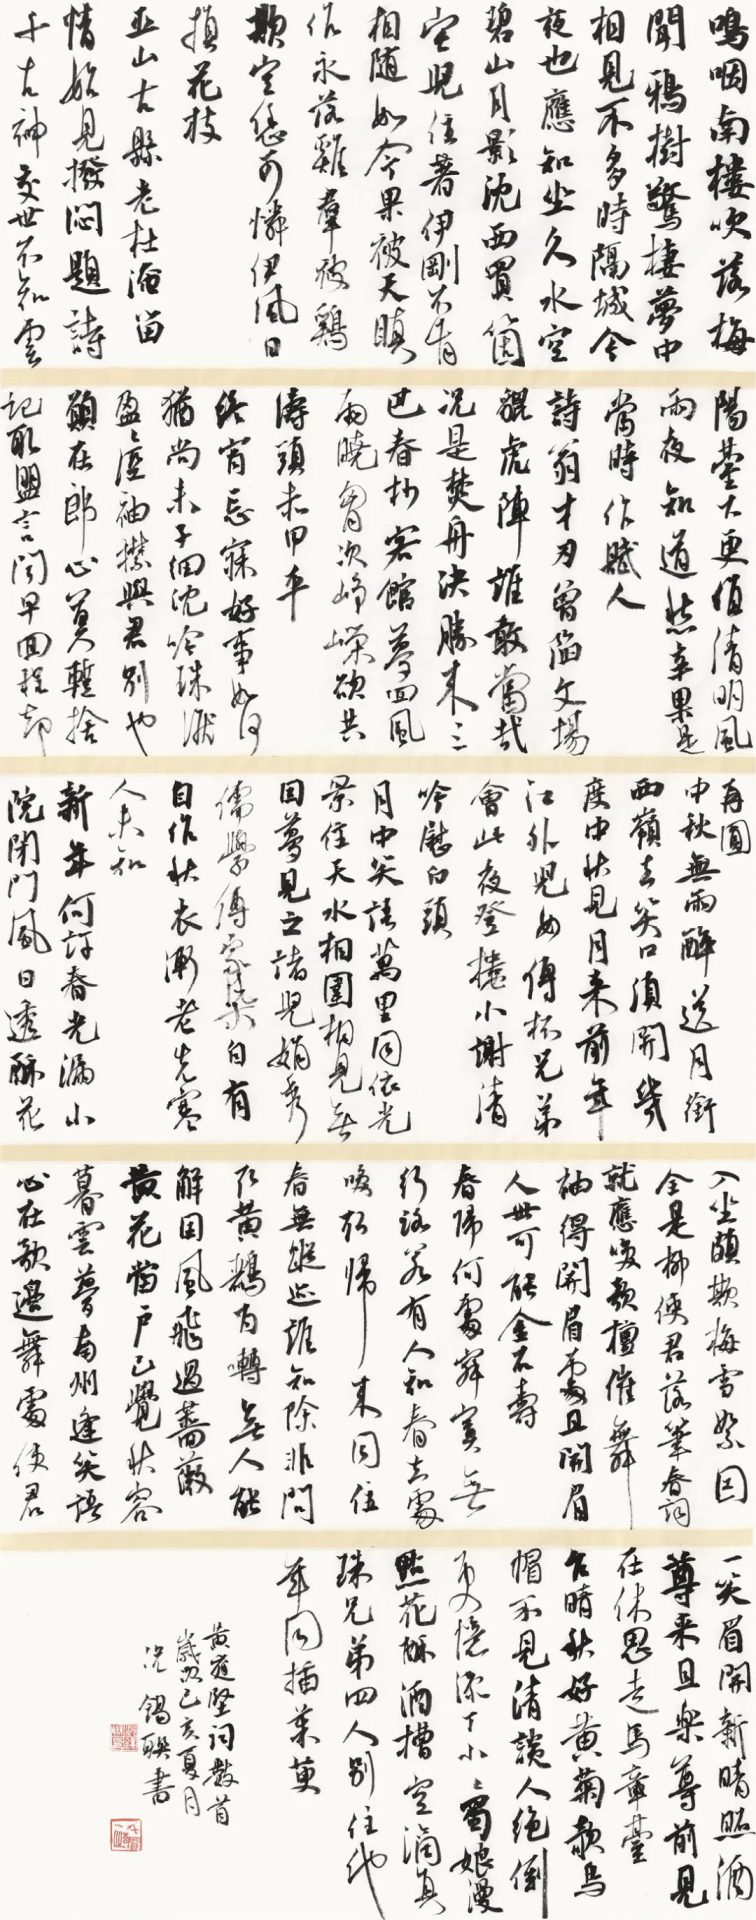 鳴咽南樓吹落梅
聞鴉樹驚棲夢中
相見不多時隔城今
夜也應知坐久水空
碧山月影沈西買箇
宅兒住著伊剛不肯
相隨如今果被天瞋
作永落雞羣被鷄
欺空恁可憐伊風日
損花枝
巫山古縣老杜淹留
情始見撥悶題詩
千古神交世不知雲
陽臺下更值清明風
雨夜知道愁辛果是
當時作賦人
詩翁才刃曾陷文場
貔虎陣誰敢當哉
況是焚舟決勝來三
巴春杪客館夢回風
雨曉胷次崢嶸欲共
濤頭赤甲平
終宵忘寐好事如何
猶尚未子細沈吟珠淚
盈〻溼袖襟與君別也
願在郎心莫暫捨
記取盟言聞早回程却
再圓
中秋無雨醉送月銜
西嶺去笑口須開幾
度中秋見月來前年
江外兒女傳杯兄弟
會此夜登樓小謝清
吟慰白頭
月中笑語萬里同依光
景住天水相圍相見無
因夢見之諸兒娟秀
儒學傳家渠自有
自作秋衣漸老先寒
人未知
新年何許春光漏小
院閉門風日透酥花
入坐頗欺梅雪絮因
全是柳使君落筆春詞
就應喚歌檀催舞
袖得開眉處且開眉
人世可能金石壽
春歸何處寂寞無
行路若有人知春去處
喚取歸來同住
春無蹤跡誰知除非問
取黃鸝百囀無人能
解因風飛過薔薇
黃花當戶已覺秋容
暮雲夢南州逢笑語
心在歌邊舞處使君
一笑眉開新晴照酒
尊來且樂尊前見
在休思走馬章臺
台晴秋好黃菊欹烏
帽不見清談人絕倒
更憶添丁小〻蜀娘漫
點花酥酒槽空滴真
珠兄弟四人別住他
年同插茱萸
黃庭堅詞數首
歲次己亥夏月
況錫聯書